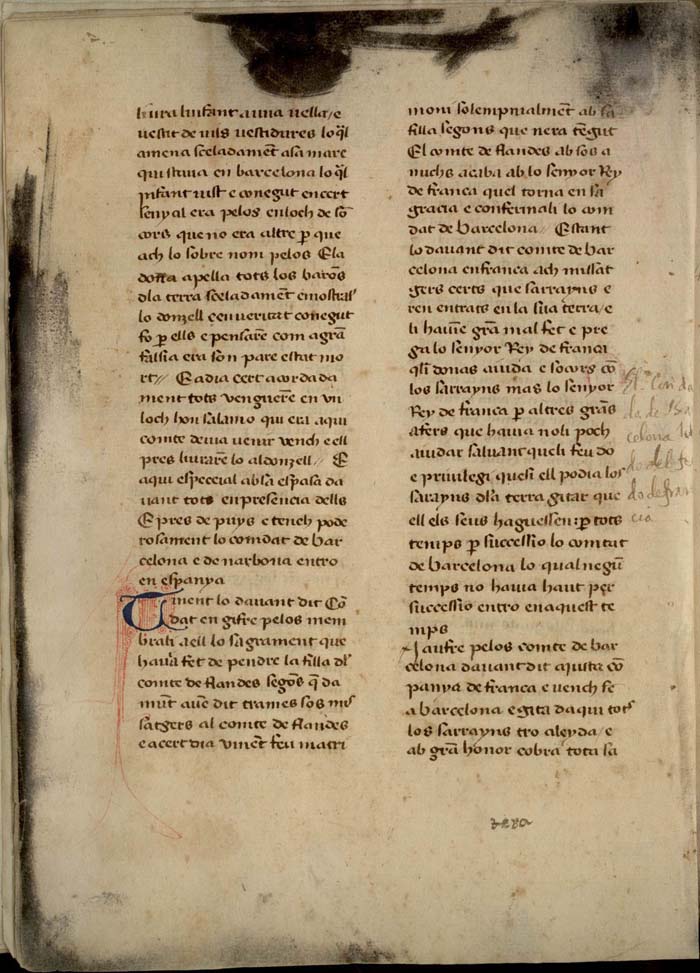 liura linfant a una uella / e
uestit de uils uestidures lo q̄l
amena sceladamēt a sa mare
qui staua en barcelona lo q̄l
infant uist e conegut en cert
senyal era pelos en loch de sō
cors que no era altre ꝑ que
ach lo sobre nom pelos Ela
dona apella tots los barōs
dla terra sceladamēt e mostrals
lo donzell e en ueritat conegut
fo ꝑ ells e pensarē com a grā
falsia era son pare estat mo
rt // E a dia cert acordada
ment tots venguerē en vn
loch hon salamo qui era aqui
comte deuia uenir vench e ell
pres liurarē lo al donzell // E
aqui especeial ab sa espasa da
uant tots en presencia dells
E pres de puys e tench pode
rosament lo comdat de bar
celona e de narbona entro
en espanya
Tinent lo dauant dit Cō
dat en gifre pelos mem
bra li a ell lo sagrament que
hauia fet de pendre la filla dl
comte de flandes segōs q̄ da
mūt auē dit trames sos mis
satgers al comte de flandes
e a cert dia vinēt feu matri
moni solempnialmēt ab sa
filla segons que nera tēgut
El comte de flandes ab sos a
michs acaba ab lo senyor Rey
de franca quel torna en sa
gracia e conferma li lo com
dat de barcelona // Estant
lo dauant dit comte de bar
celona en franca ach missat
gers certs que sarrayns e
ren entrats en la sua terra / e
li hauiē grā mal fet e pre
ga lo senyor Rey de franca
q̄li donas aiuda e socors cō
los sarrayns mas lo senyor
Rey de franca ꝑ altres grās
afers que hauia no li poch
aiudar saluant queli feu do
e priuilegi quesi ell podia los
sarayns dla terra gitar que
ell els seus haguessen ꝑ tots
temps ꝑ successio lo comtat
de barcelona lo qual negū
temps no hauia haut per
successio entro en aquest te
mps
Iaufre pelos comte de bar
celona dauant dit aiusta cō
panya de franca e vench sē
a barcelona e gita daqui tots
los sarrayns tro a leyda / e
ab grā honor cobra tota sa
El Conda
do de Bar
celona
do de
do de fran
cia